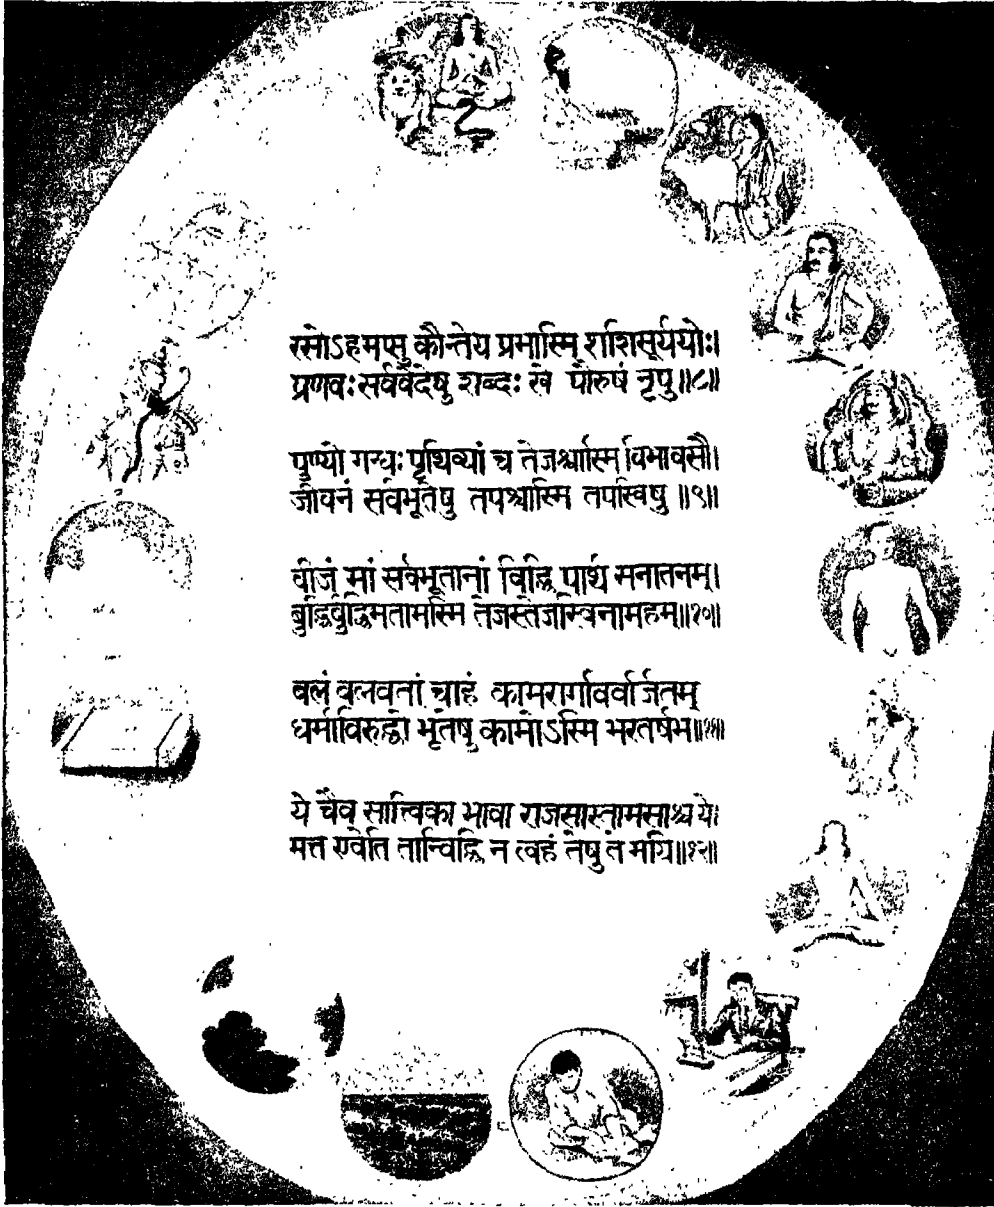 रसोऽहमप्सु कौन्तेय प्रभास्मि शशिसूर्ययोः।
प्रणवः सर्ववेदेषु शब्दः खे पौरुषं नृषु॥८॥
पुण्यो गन्धः पृथिव्यां च तेजश्चास्मि विभावसौ।
जीवनं सर्वभूतेषु तपश्चास्मि तपस्विषु ॥९॥
बीजं मां सर्वभूतानां विद्धि पार्थ सनातनम्।
बुद्धिर्बुद्धिमतामस्मि तेजस्तेजस्विनामहम्॥१०॥
बलं बलवतां चाहं कामरागविवर्जितम्
धर्माविरुद्धो भूतेषु कामोऽस्मि भरतर्षभ॥११॥
ये चैव सात्त्विका भावा राजसास्तामसाश्च ये।
मत्त एवेति तान्विद्धि न त्वहं तेषु ते मयि॥१२॥